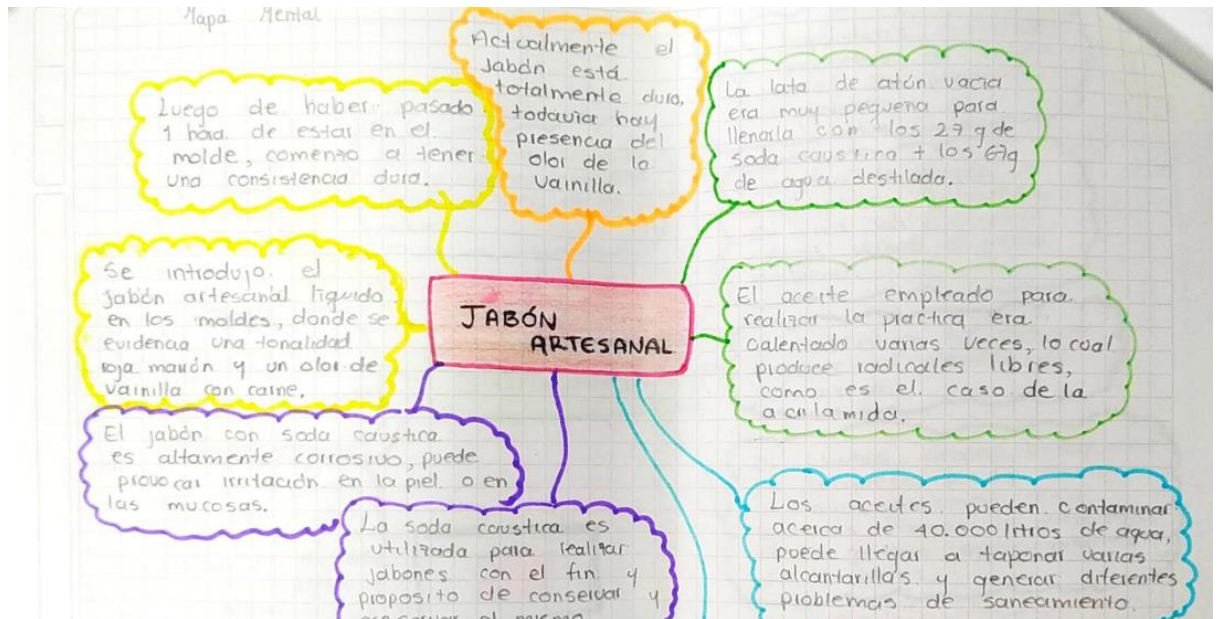 Mapa Mental
Actualmente el
jabón está
totalmente duro,
todavia hay
presencia del
olor de la
vainilla.
Luego de haber pasado
1 hora de estar en el
molde, comenzo a tener
una consistencia dura.
La lata de atún vacia
era muy pequeña para
llenarla con los 27 g de
soda caustica + los 67g
de agua destilada.
Se introdujo el
jabón artesanal liquido
en los moldes, donde se
evidencia una tonalidad
roja marrón y un olor de
vainilla con carne.
JABÓN
ARTESANAL
El aceite empleado para
realizar la practica era
calentado varias veces, lo cual
produce radicales libres,
como es el caso de la
acrilamida.
El jabón con soda caustica
es altamente corrosivo, puede
provocar irritación en la piel o en
las mucosas.
La soda caustica es
utilizada para realizar
jabones con el fin y
proposito de conservar y
Los aceites pueden contaminar
acerca de 40.000 litros de agua,
puede llegar a taponar varias
alcantarillas y generar diferentes
problemas de saneamiento.